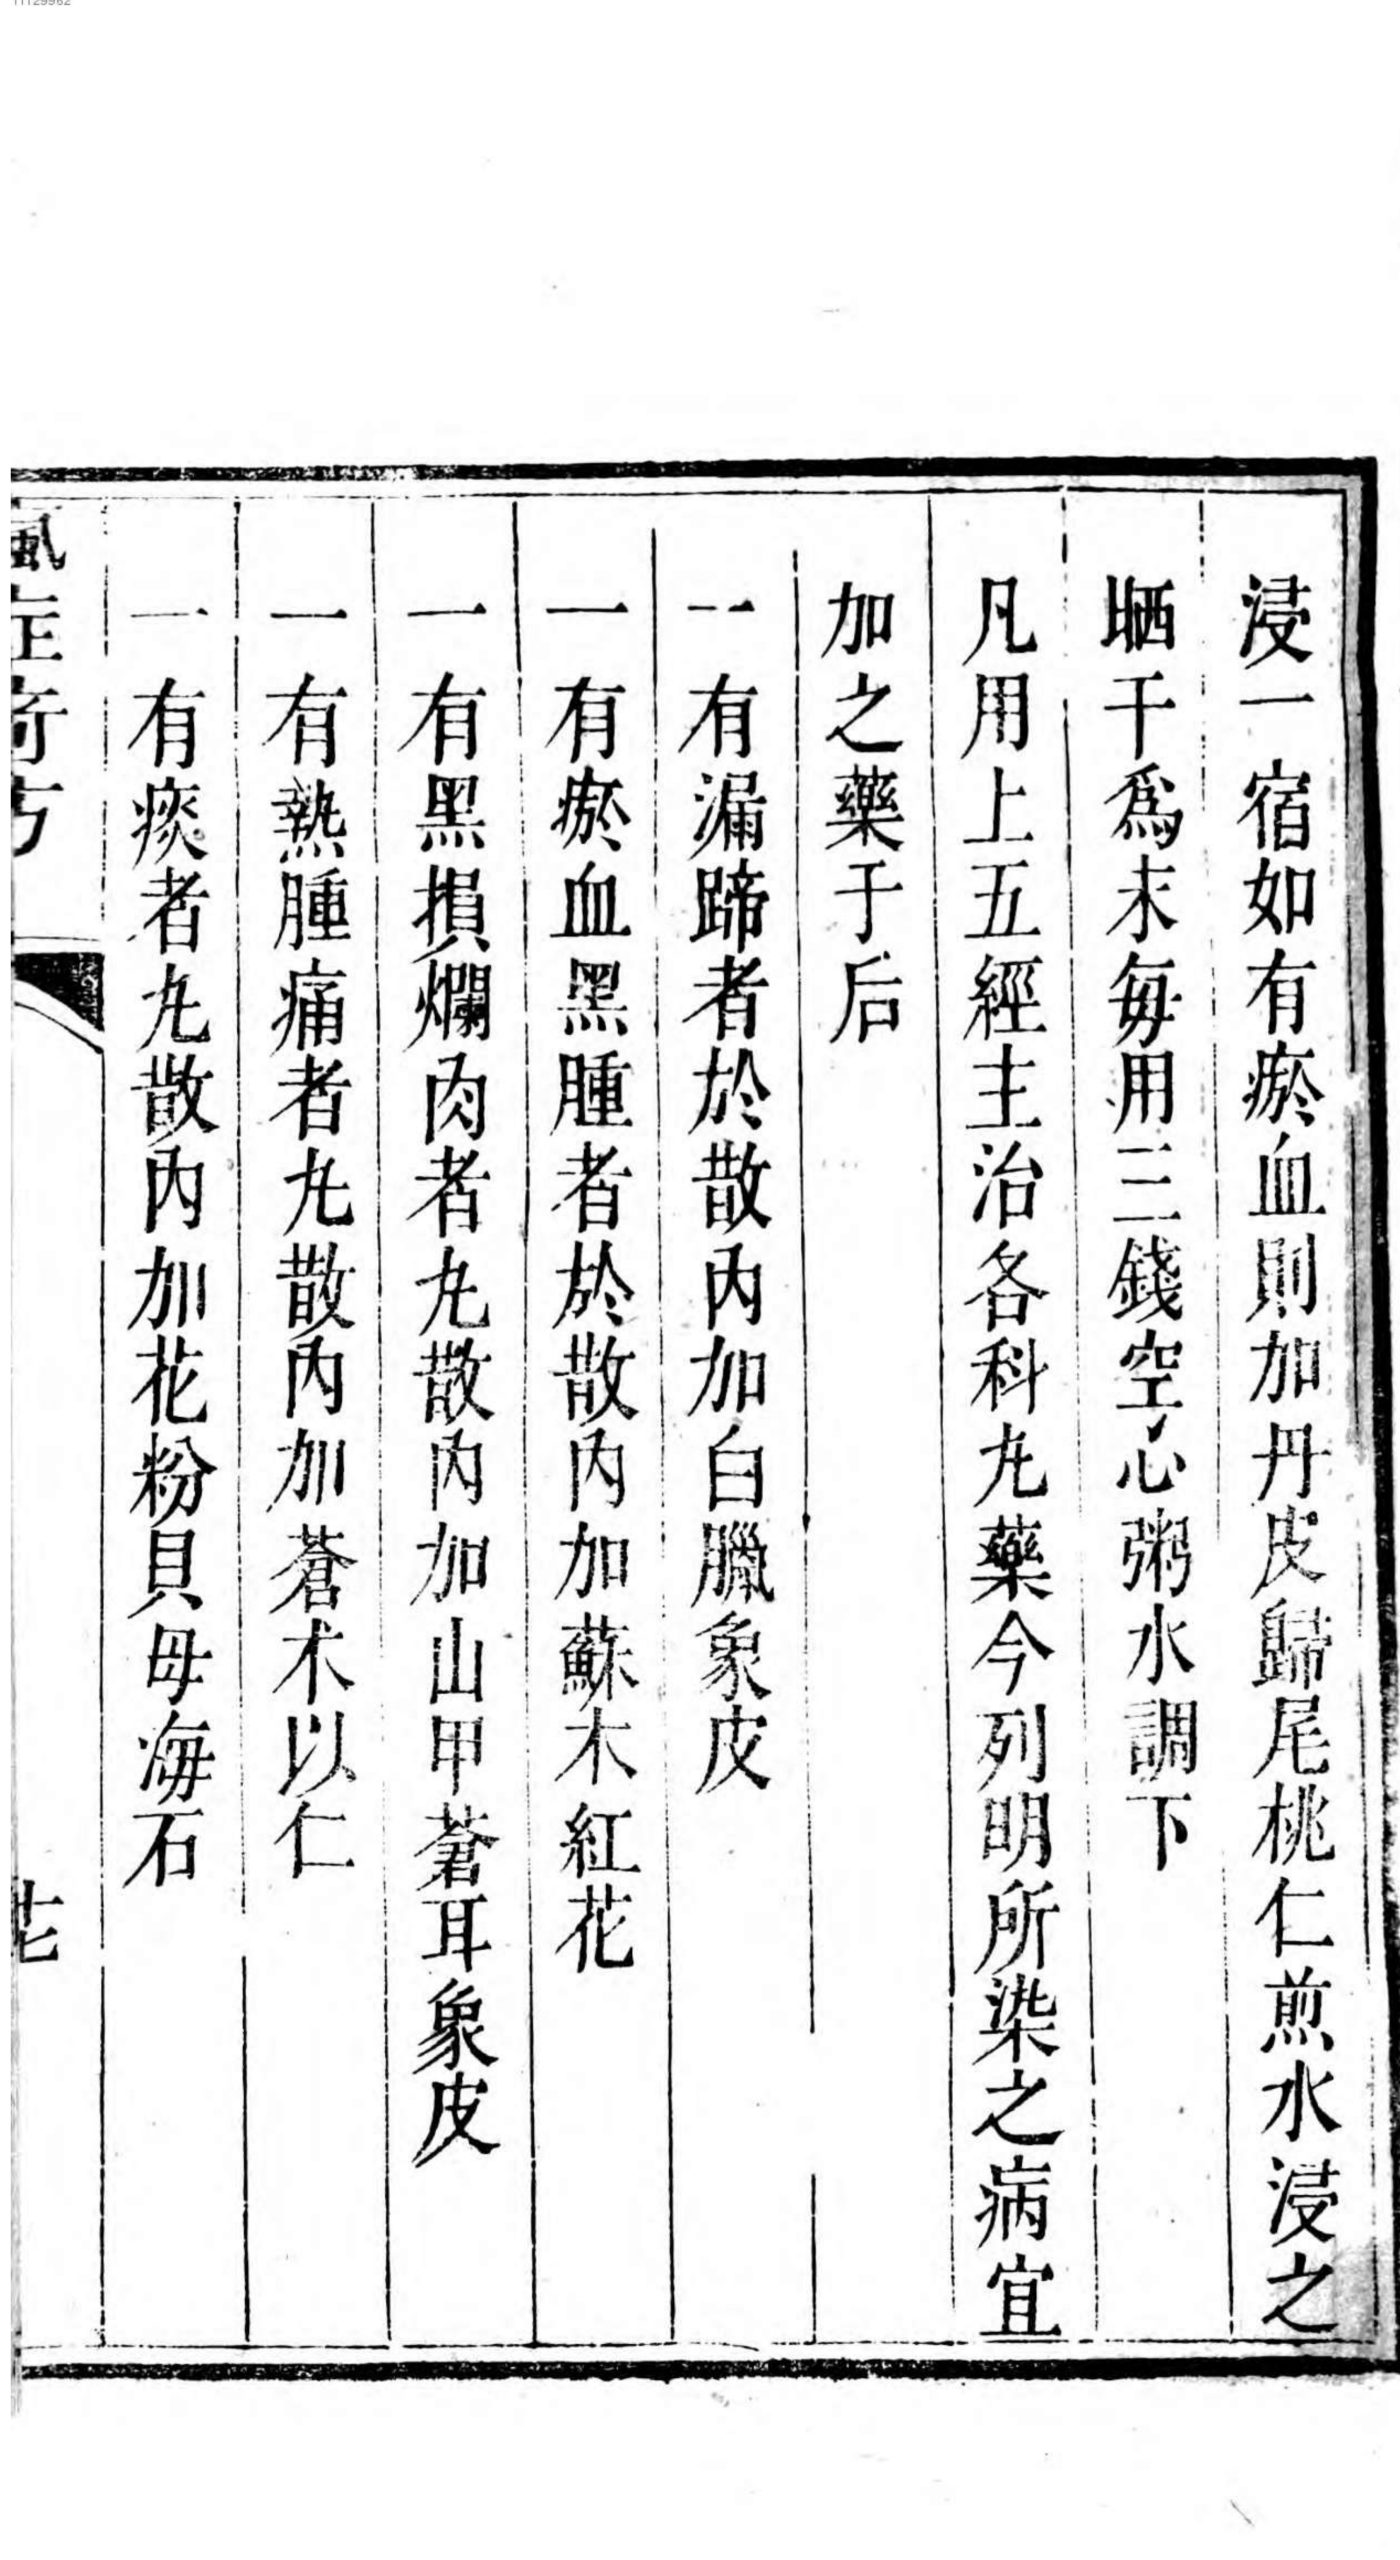 浸一宿如有瘀血則加丹皮歸尾桃仁煎水浸之
晒干爲末每用三錢空心粥水調下
凡用上五經主治各科尢藥今列明所染之病宜
加之藥于后
一有漏蹄者於散內加白臘象皮
一有瘀血黑腫者於散內加蘇木紅花
一有黑損爛肉者尢散內加山甲蒼耳象皮
一有熱腫痛者尢散內加蒼朮以仁
一有痰者尢散內加花粉貝母海石
11129962